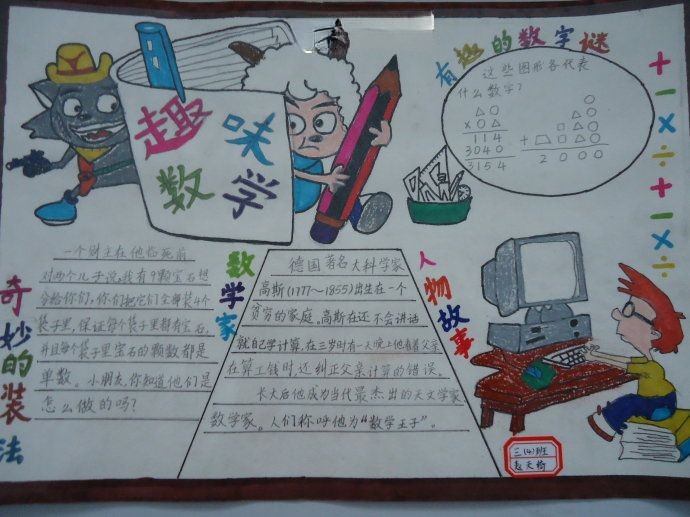 趣味
数学
有趣的数字谜
这些图形各代表
什么数字？
△○
×○△
114
3040
3154
○
△○
□△○
+□△○
2000
+-×÷+-×÷
奇妙的装法
一个财主在他临死前
对两个儿子说：我有9颗宝石想
分给你们，你们把它们全部装4个
袋子里，保证每个袋子里都有宝石，
并且每个袋子里宝石的颗数都是
单数。小朋友，你知道他们是
怎么做的吗？
数学家
德国著名大科学家
高斯(1777～1855)出生在一个
贫穷的家庭。高斯在还不会讲话
就自己学计算，在三岁时有一天晚上他看着父亲
在算工钱时，还纠正父亲计算的错误。
长大后他成为当代最杰出的天文学家
数学家。人们称呼他为“数学王子”。
人物故事
三(4)班
赵天楠